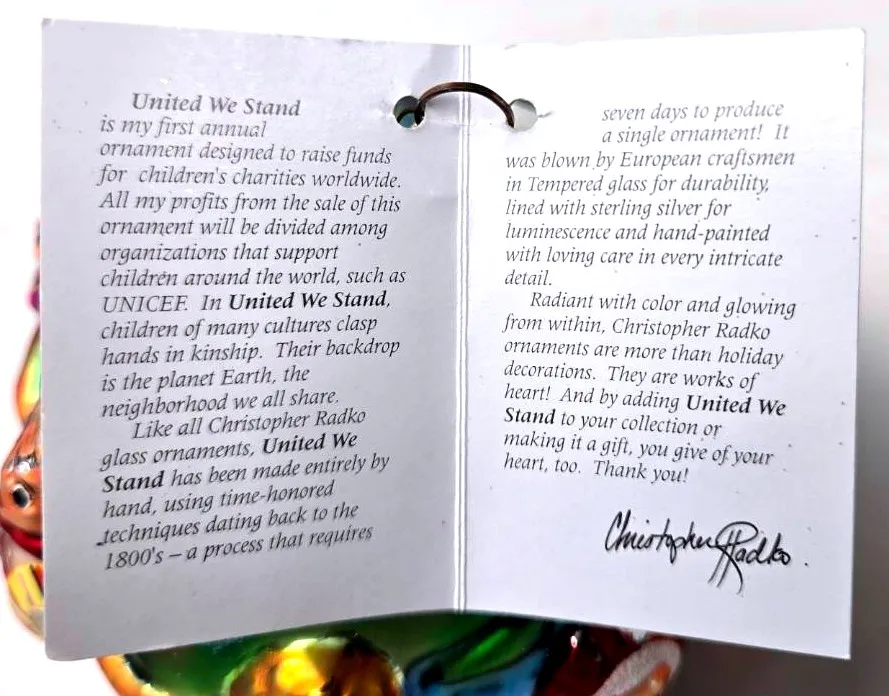 United We Stand
is my first annual
ornament designed to raise funds
for children's charities worldwide.
All my profits from the sale of this
ornament will be divided among
organizations that support
children around the world, such as
UNICEF. In United We Stand,
children of many cultures clasp
hands in kinship. Their backdrop
is the planet Earth, the
neighborhood we all share.
Like all Christopher Radko
glass ornaments, United We
Stand has been made entirely by
hand, using time-honored
techniques dating back to the
1800's – a process that requires
seven days to produce
a single ornament! It
was blown by European craftsmen
in Tempered glass for durability,
lined with sterling silver for
luminescence and hand-painted
with loving care in every intricate
detail.
Radiant with color and glowing
from within, Christopher Radko
ornaments are more than holiday
decorations. They are works of
heart! And by adding United We
Stand to your collection or
making it a gift, you give of your
heart, too. Thank you!
Christopher Radko.